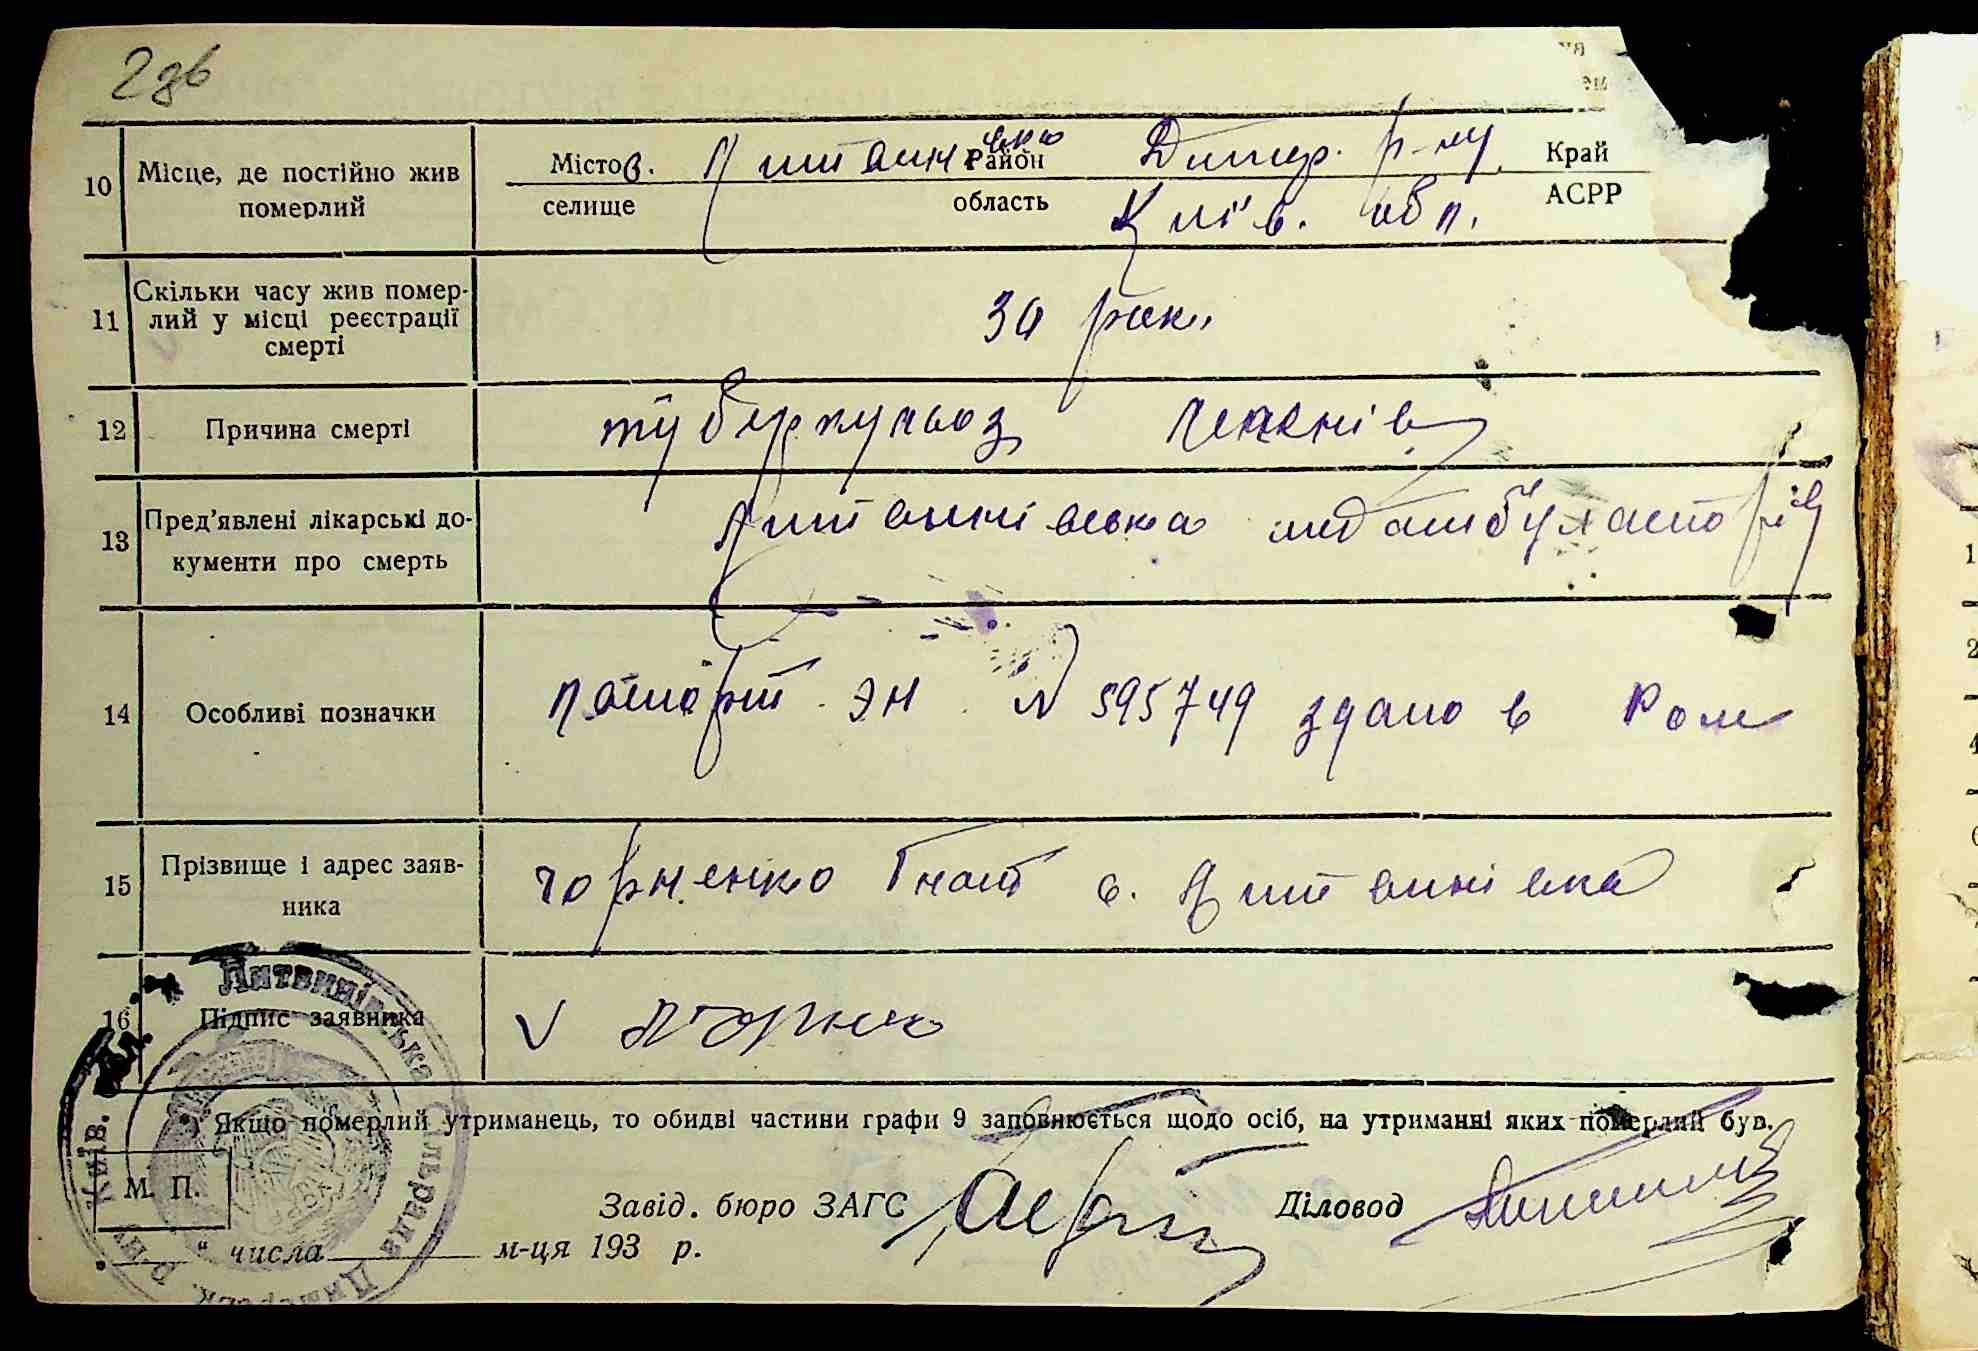 2 зв
10 Місце, де постійно жив померлий
Місто с. Литвинівка район Димер. р-ну Край
селище область Київ. обл. АСРР
11 Скільки часу жив померлий у місці реєстрації смерті
30 роки
12 Причина смерті
туберкульоз легенів
13 Пред'явлені лікарські документи про смерть
Литвинівська медамбулаторія
14 Особливі позначки
паспорт ЭН № 595749 здано в
15 Прізвище і адрес заявника
Чорненко Гнат с. Литвинівка
16 Підпис заявника
V
*) Якщо померлий утриманець, то обидві частини графи 9 заповнюється щодо осіб, на утриманні яких померлий був.
М. П.
Завід. бюро ЗАГС Діловод
" числа м-ця 193 р.
Литвинівська Сільрада Димерськ. р-ну Київ. обл.